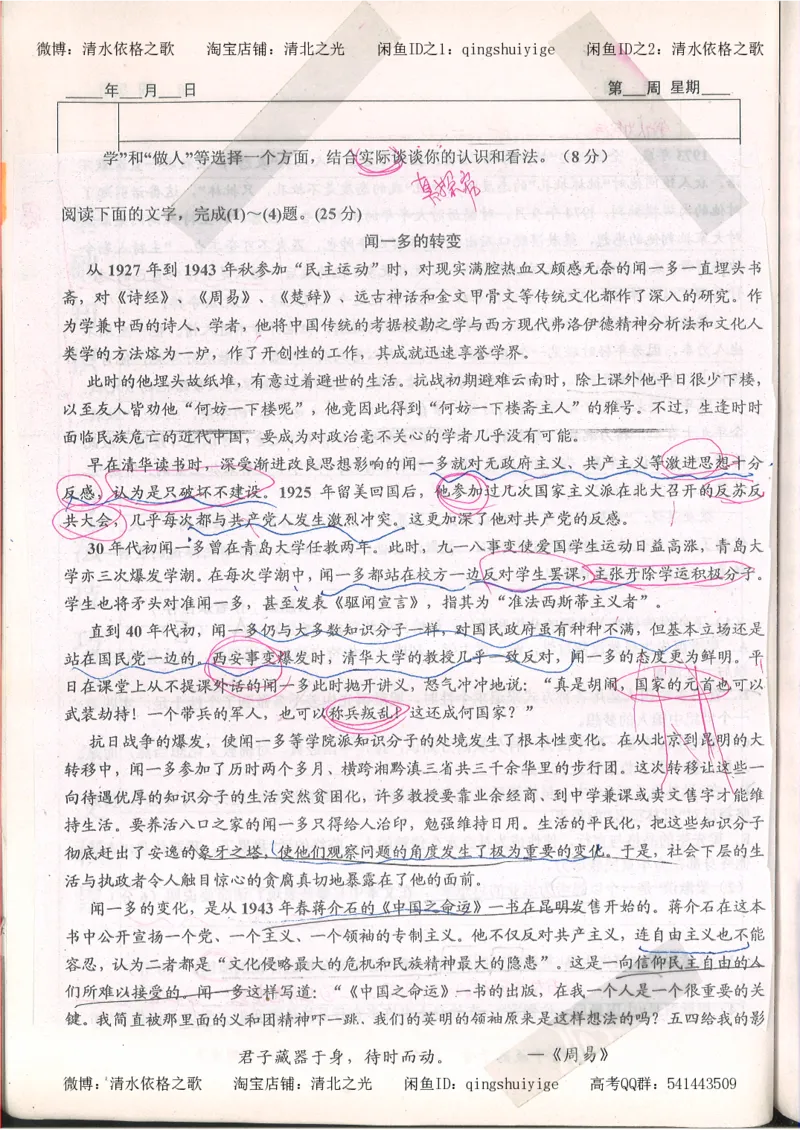 微博：清水依格之歌 淘宝店铺：清北之光 闲鱼ID之1：qingshuiyige 闲鱼ID之2：清水依格之歌
____年___月___日 第___周 星期____
学”和“做人”等选择一个方面，结合实际谈谈你的认识和看法。（8 分）
阅读下面的文字，完成(1)～(4)题。(25 分)
闻一多的转变
从 1927 年到 1943 年秋参加“民主运动”时，对现实满腔热血又颇感无奈的闻一多一直埋头书
斋，对《诗经》、《周易》、《楚辞》、远古神话和金文甲骨文等传统文化都作了深入的研究。作
为学兼中西的诗人、学者，他将中国传统的考据校勘之学与西方现代弗洛伊德精神分析法和文化人
类学的方法熔为一炉，作了开创性的工作，其成就迅速享誉学界。
此时的他埋头故纸堆，有意过着避世的生活。抗战初期避难云南时，除上课外他平日很少下楼，
以至友人皆劝他“何妨一下楼呢”，他竟因此得到“何妨一下楼斋主人”的雅号。不过，生逢时时
面临民族危亡的近代中国，要成为对政治毫不关心的学者几乎没有可能。
早在清华读书时，深受渐进改良思想影响的闻一多就对无政府主义、共产主义等激进思想十分
反感，认为是只破坏不建设。1925 年留美回国后，他参加过几次国家主义派在北大召开的反苏反
共大会，几乎每次都与共产党人发生激烈冲突。这更加深了他对共产党的反感。
30 年代初闻一多曾在青岛大学任教两年。此时，九一八事变使爱国学生运动日益高涨，青岛大
学亦三次爆发学潮。在每次学潮中，闻一多都站在校方一边反对学生罢课，主张开除学运积极分子。
学生也将矛头对准闻一多，甚至发表《驱闻宣言》，指其为“准法西斯蒂主义者”。
直到 40 年代初，闻一多仍与大多数知识分子一样，对国民政府虽有种种不满，但基本立场还是
站在国民党一边的。西安事变爆发时，清华大学的教授几乎一致反对，闻一多的态度更为鲜明。平
日在课堂上从不提课外话的闻一多此时抛开讲义，怒气冲冲地说：“真是胡闹，国家的元首也可以
武装劫持！一个带兵的军人，也可以称兵叛乱！这还成何国家？”
抗日战争的爆发，使闻一多等学院派知识分子的处境发生了根本性变化。在从北京到昆明的大
转移中，闻一多参加了历时两个多月、横跨湘黔滇三省共三千余华里的步行团。这次转移让这些一
向待遇优厚的知识分子的生活突然贫困化，许多教授要靠业余经商、到中学兼课或卖文售字才能维
持生活。要养活八口之家的闻一多只得给人治印，勉强维持日用。生活的平民化，把这些知识分子
彻底赶出了安逸的象牙之塔，使他们观察问题的角度发生了极为重要的变化。于是，社会下层的生
活与执政者令人触目惊心的贪腐真切地暴露在了他的面前。
闻一多的变化，是从 1943 年春蒋介石的《中国之命运》一书在昆明发售开始的。蒋介石在这本
书中公开宣扬一个党、一个主义、一个领袖的专制主义。他不仅反对共产主义，连自由主义也不能
容忍，认为二者都是“文化侵略最大的危机和民族精神最大的隐患”。这是一向信仰民主自由的人
们所难以接受的，闻一多这样写道：“《中国之命运》一书的出版，在我一个人是一个很重要的关
键。我简直被那里面的义和团精神吓一跳、我们的英明的领袖原来是这样想法的吗？五四给我的影
君子藏器于身，待时而动。 —《周易》
微博：清水依格之歌 淘宝店铺：清北之光 闲鱼ID：qingshuiyige 高考QQ群：541443509